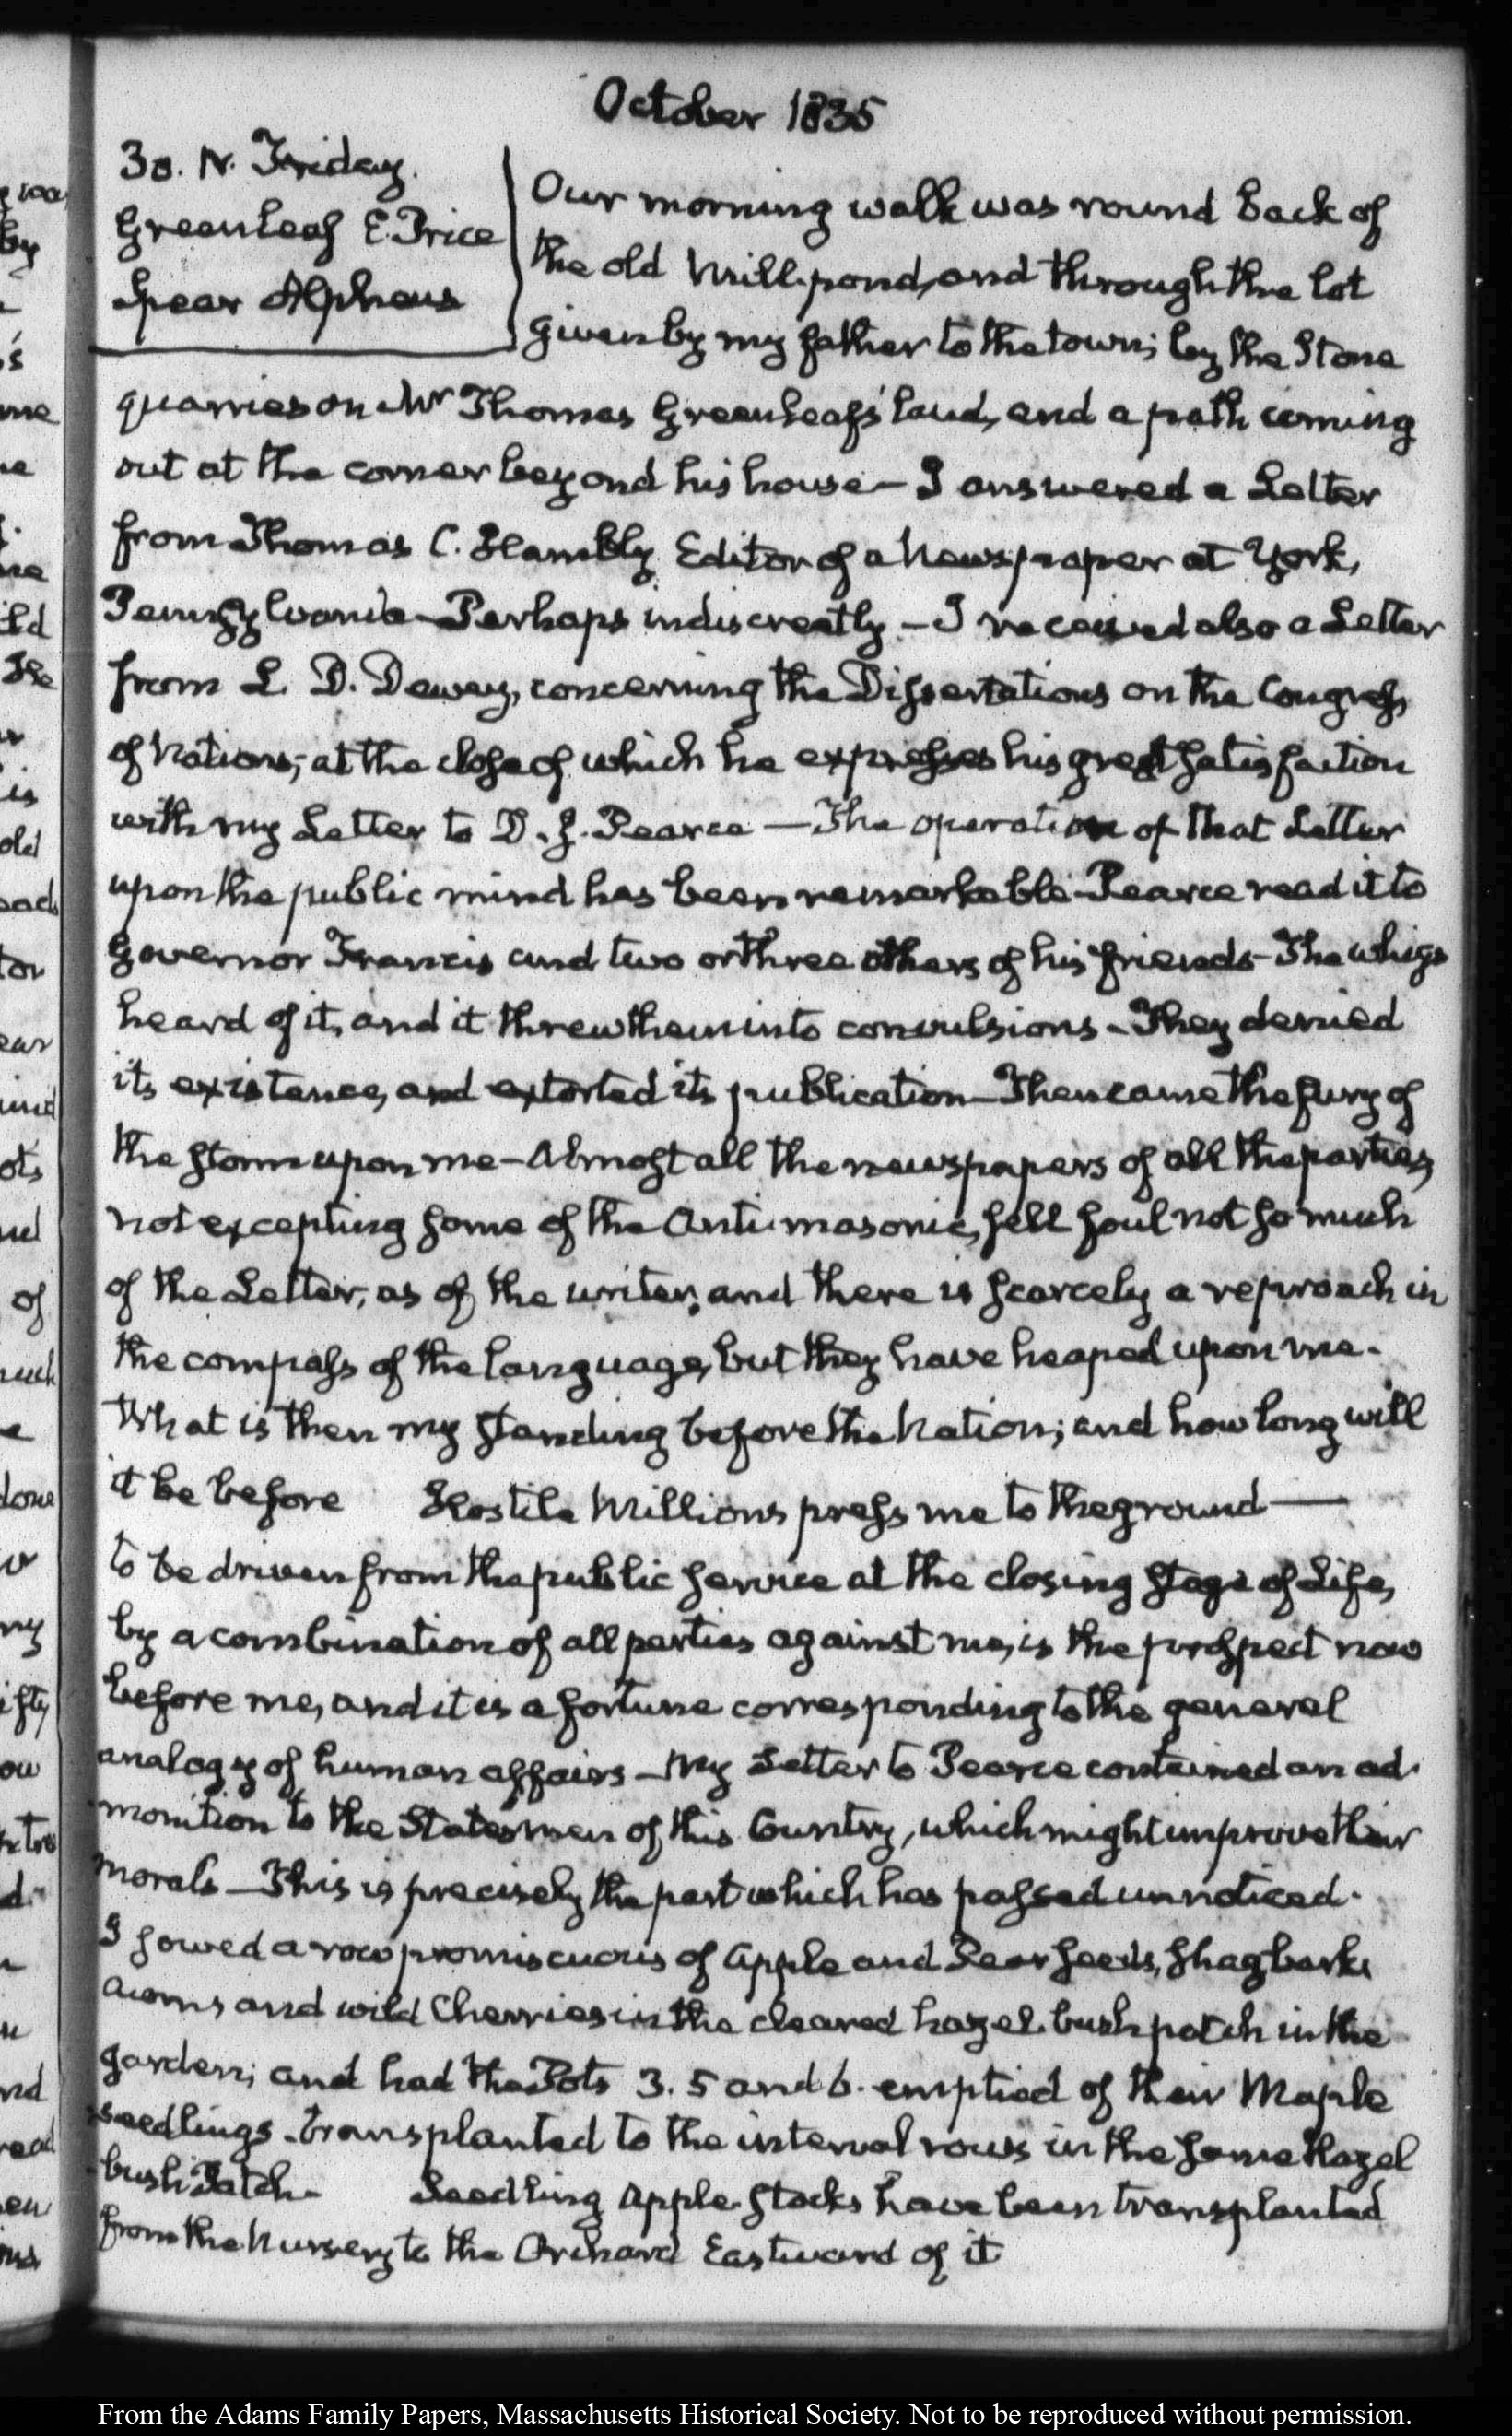 October 1835
30. IV. Friday.
Greenleaf E. Price
Spear Alpheus
Our morning walk was round back of
the old Mill-pond, and through the lot
given by my father to the town; by the Stone
quarries on Mr Thomas Greenleaf's land, and a path coming
out at the corner beyond his house — I answered a Letter
from Thomas C. Hambly Editor of a Newspaper at York,
Pennsylvania — Perhaps indiscreetly — I received also a Letter
from L. D. Dewey, concerning the Dissertations on the Congress
of Nations; at the close of which he expresses his great satisfaction
with my Letter to D. J. Pearce — The operation of that Letter
upon the public mind has been remarkable — Pearce read it to
Governor Francis and two or three others of his friends — The whigs
heard of it, and it threw them into convulsions — They denied
its existence, and extorted its publication — Then came the fury of
the storm upon me — Almost all the newspapers of all the parties,
not excepting some of the Antimasonic, fell foul not so much
of the Letter, as of the writer, and there is scarcely a reproach in
the compass of the language, but they have heaped upon me.
What is then my standing before the Nation; and how long will
it be before Hostile Millions press me to the ground —
to be driven from the public service at the closing stage of Life,
by a combination of all parties against me, is the prospect now
before me, and it is a fortune corresponding to the general
analogy of human affairs — My Letter to Pearce contained an ad-
monition to the Statesmen of this Country, which might improve their
morals — This is precisely the part which has passed unnoticed.
I sowed a row promiscuous of Apple and Pear seeds, shagbarks
acorns and wild Cherries in the cleared hazel-bush patch in the
garden; and had the Pots 3. 5 and 6. emptied of their Maple
seedlings — transplanted to the interval rows in the same Hazel
bush Patch — Seedling Apple-stocks have been transplanted
from the Nursery to the Orchard Eastward of it
From the Adams Family Papers, Massachusetts Historical Society. Not to be reproduced without permission.